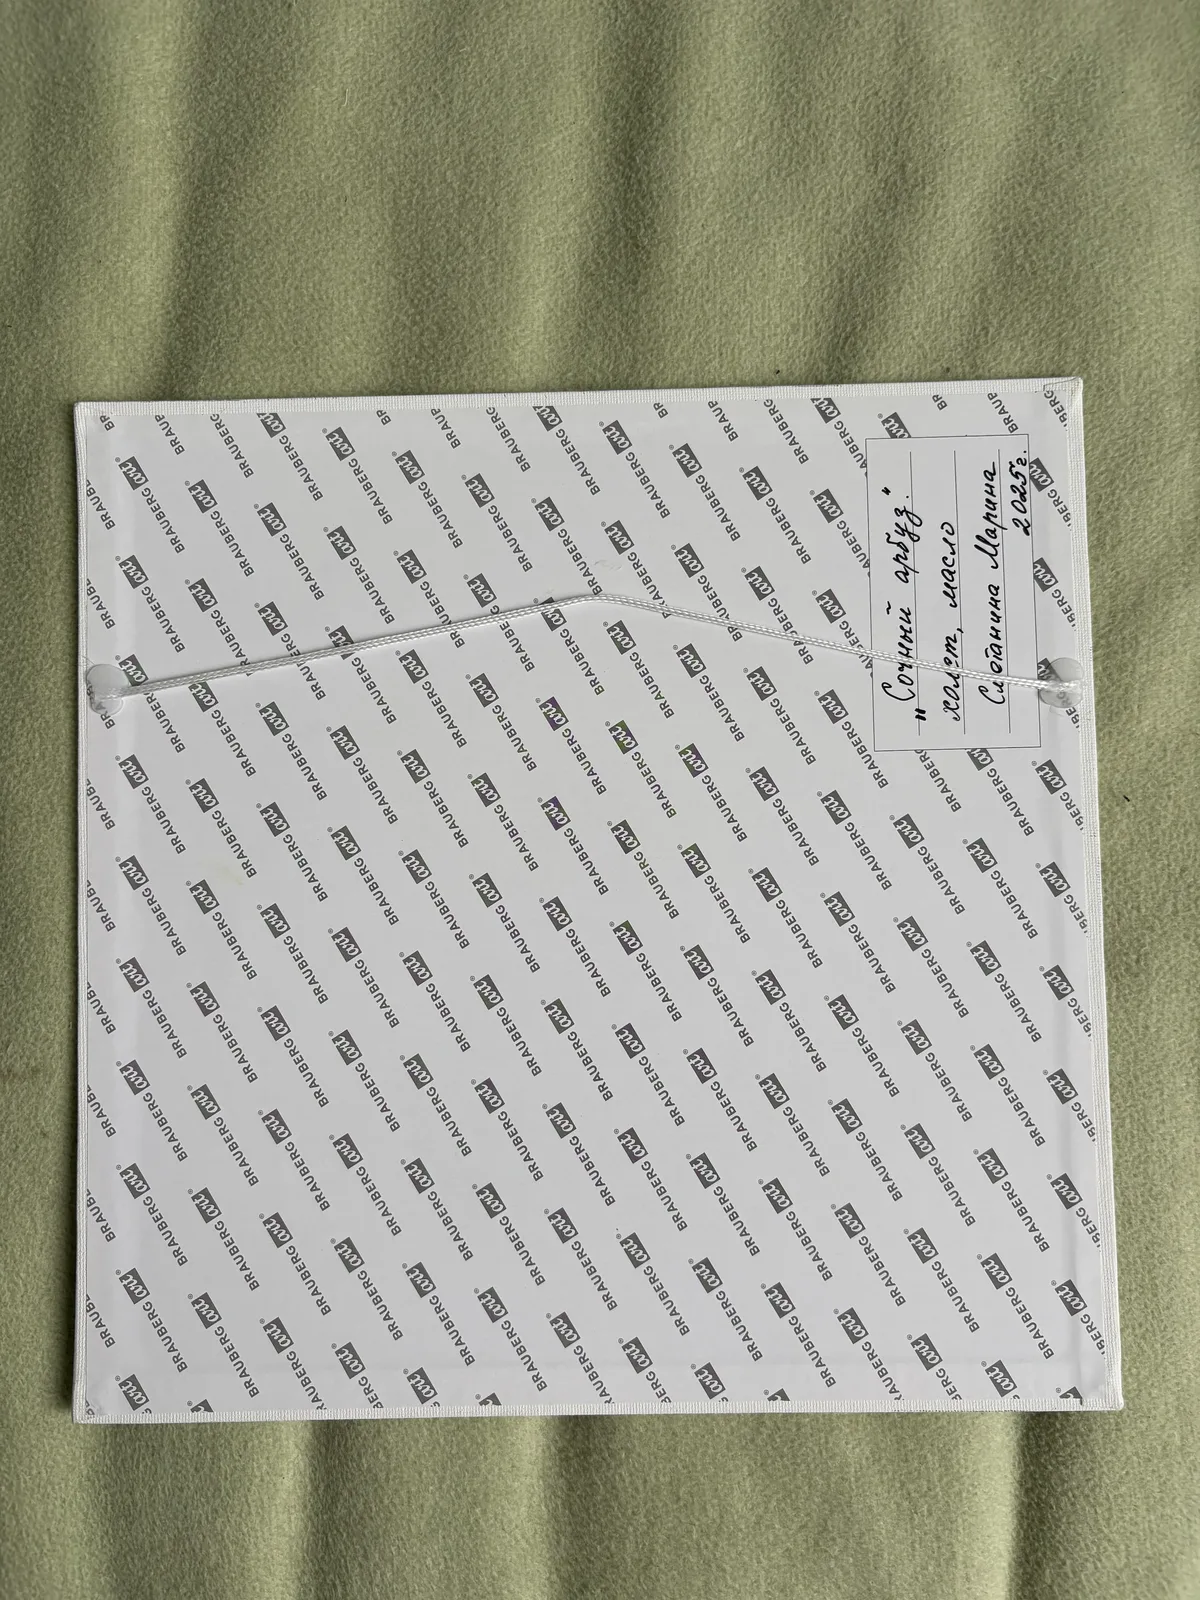 "Сочный арбуз."
холст, масло
Марина
2025г.
BRAUBERG art®